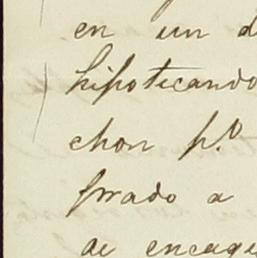 en un d
hipotecando
chon p.º
frado a
de encaqu